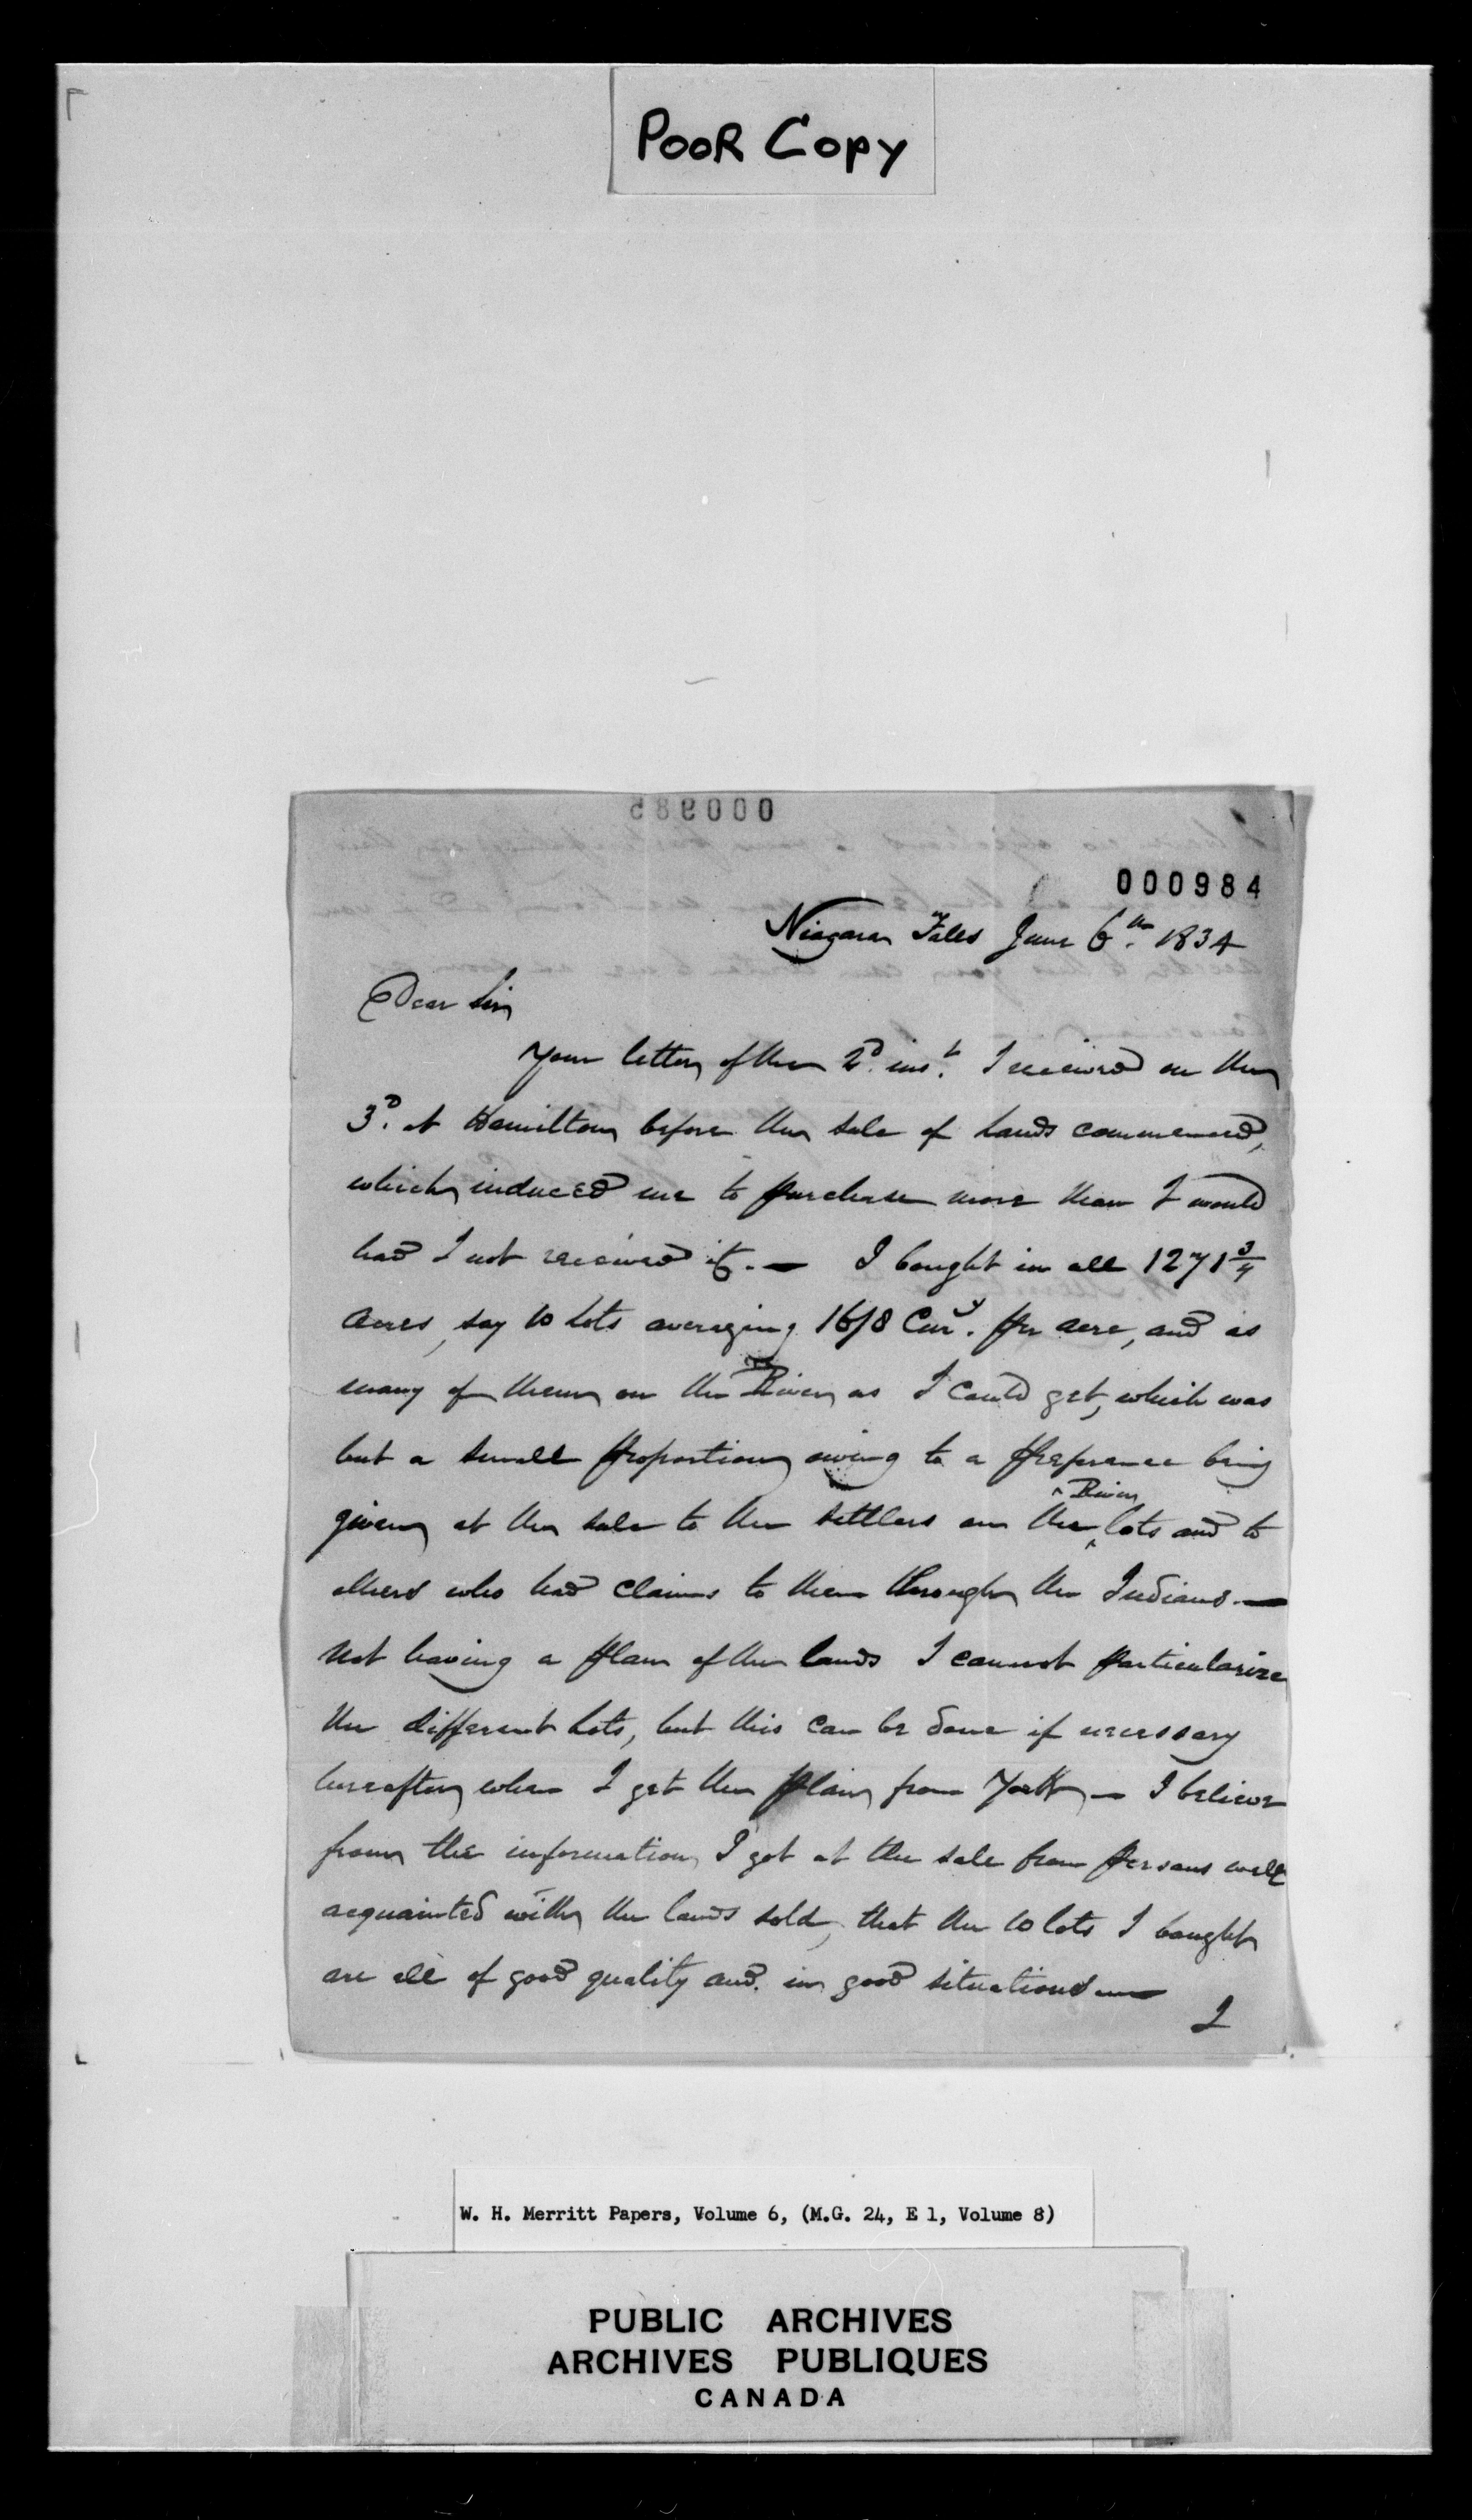 POOR COPY
000985
000984
Niagara Falls June 6th. 1834
Dear Sir
Your letter of the 2d. inst. I received on the
3d. at Hamilton before the sale of Lands commenced,
which induced me to purchase more than I would
had I not received it. — I bought in all 1271 3/4
acres, say 10 lots averaging 16/8 Cury. per acre, and as
many of them on the River as I could get, which was
but a small proportion owing to a preference being
given at the sale to the settlers on the ^River lots and to
others who had claims to them through the Indians. —
Not having a plan of the lands I cannot particularize
the different lots, but this can be done if necessary
hereafter when I get the plan from York — I believe
from the information I got at the sale from persons well
acquainted with the lands sold, that the 10 lots I bought
are all of good quality and in good situations —
I
W. H. Merritt Papers, Volume 6, (M.G. 24, E 1, Volume 8)
PUBLIC ARCHIVES
ARCHIVES PUBLIQUES
CANADA